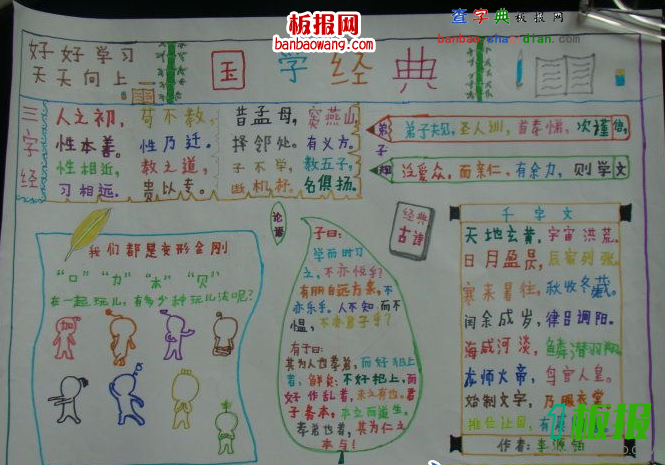 板报网
banbaowang.com
查字典板报网
banbao.chazidian.com
好好学习
天天向上
国学经典
三字经
人之初，苟不教，昔孟母，窦燕山，
性本善。性乃迁。择邻处。有义方。
性相近，教之道，子不学，教五子，
习相远。贵以专。断机杼。名俱扬。
弟子规
弟子规，圣人训，首孝悌，次谨信，
泛爱众，而亲仁，有余力，则学文
我们都是变形金刚
“口”“力”“木”“贝”
在一起玩儿，有多少种玩儿法呢？
论语
子曰：
学而时习
之，不亦悦乎？
有朋自远方来，不
亦乐乎。人不知而不
愠，不亦君子乎？
有子曰：
其为人也孝弟，而好犯上
者，鲜矣；不好犯上，而
好作乱者，未之有也。君
子务本，本立而道生。
孝弟也者，其为仁之
本与！
经典
古诗
千字文
天地玄黄，宇宙洪荒。
日月盈昃，辰宿列张。
寒来暑往，秋收冬藏。
闰余成岁，律吕调阳。
海咸河淡，鳞潜羽翔。
龙师火帝，鸟官人皇。
始制文字，乃服衣裳
推位让国，有
作者：李源
板报